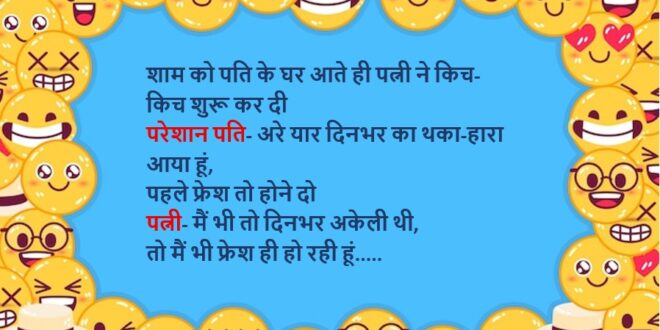 शाम को पति के घर आते ही पत्नी ने किच-
किच शुरू कर दी
परेशान पति- अरे यार दिनभर का थका-हारा
आया हूं,
पहले फ्रेश तो होने दो
पत्नी- मैं भी तो दिनभर अकेली थी,
तो मैं भी फ्रेश ही हो रही हूं.....